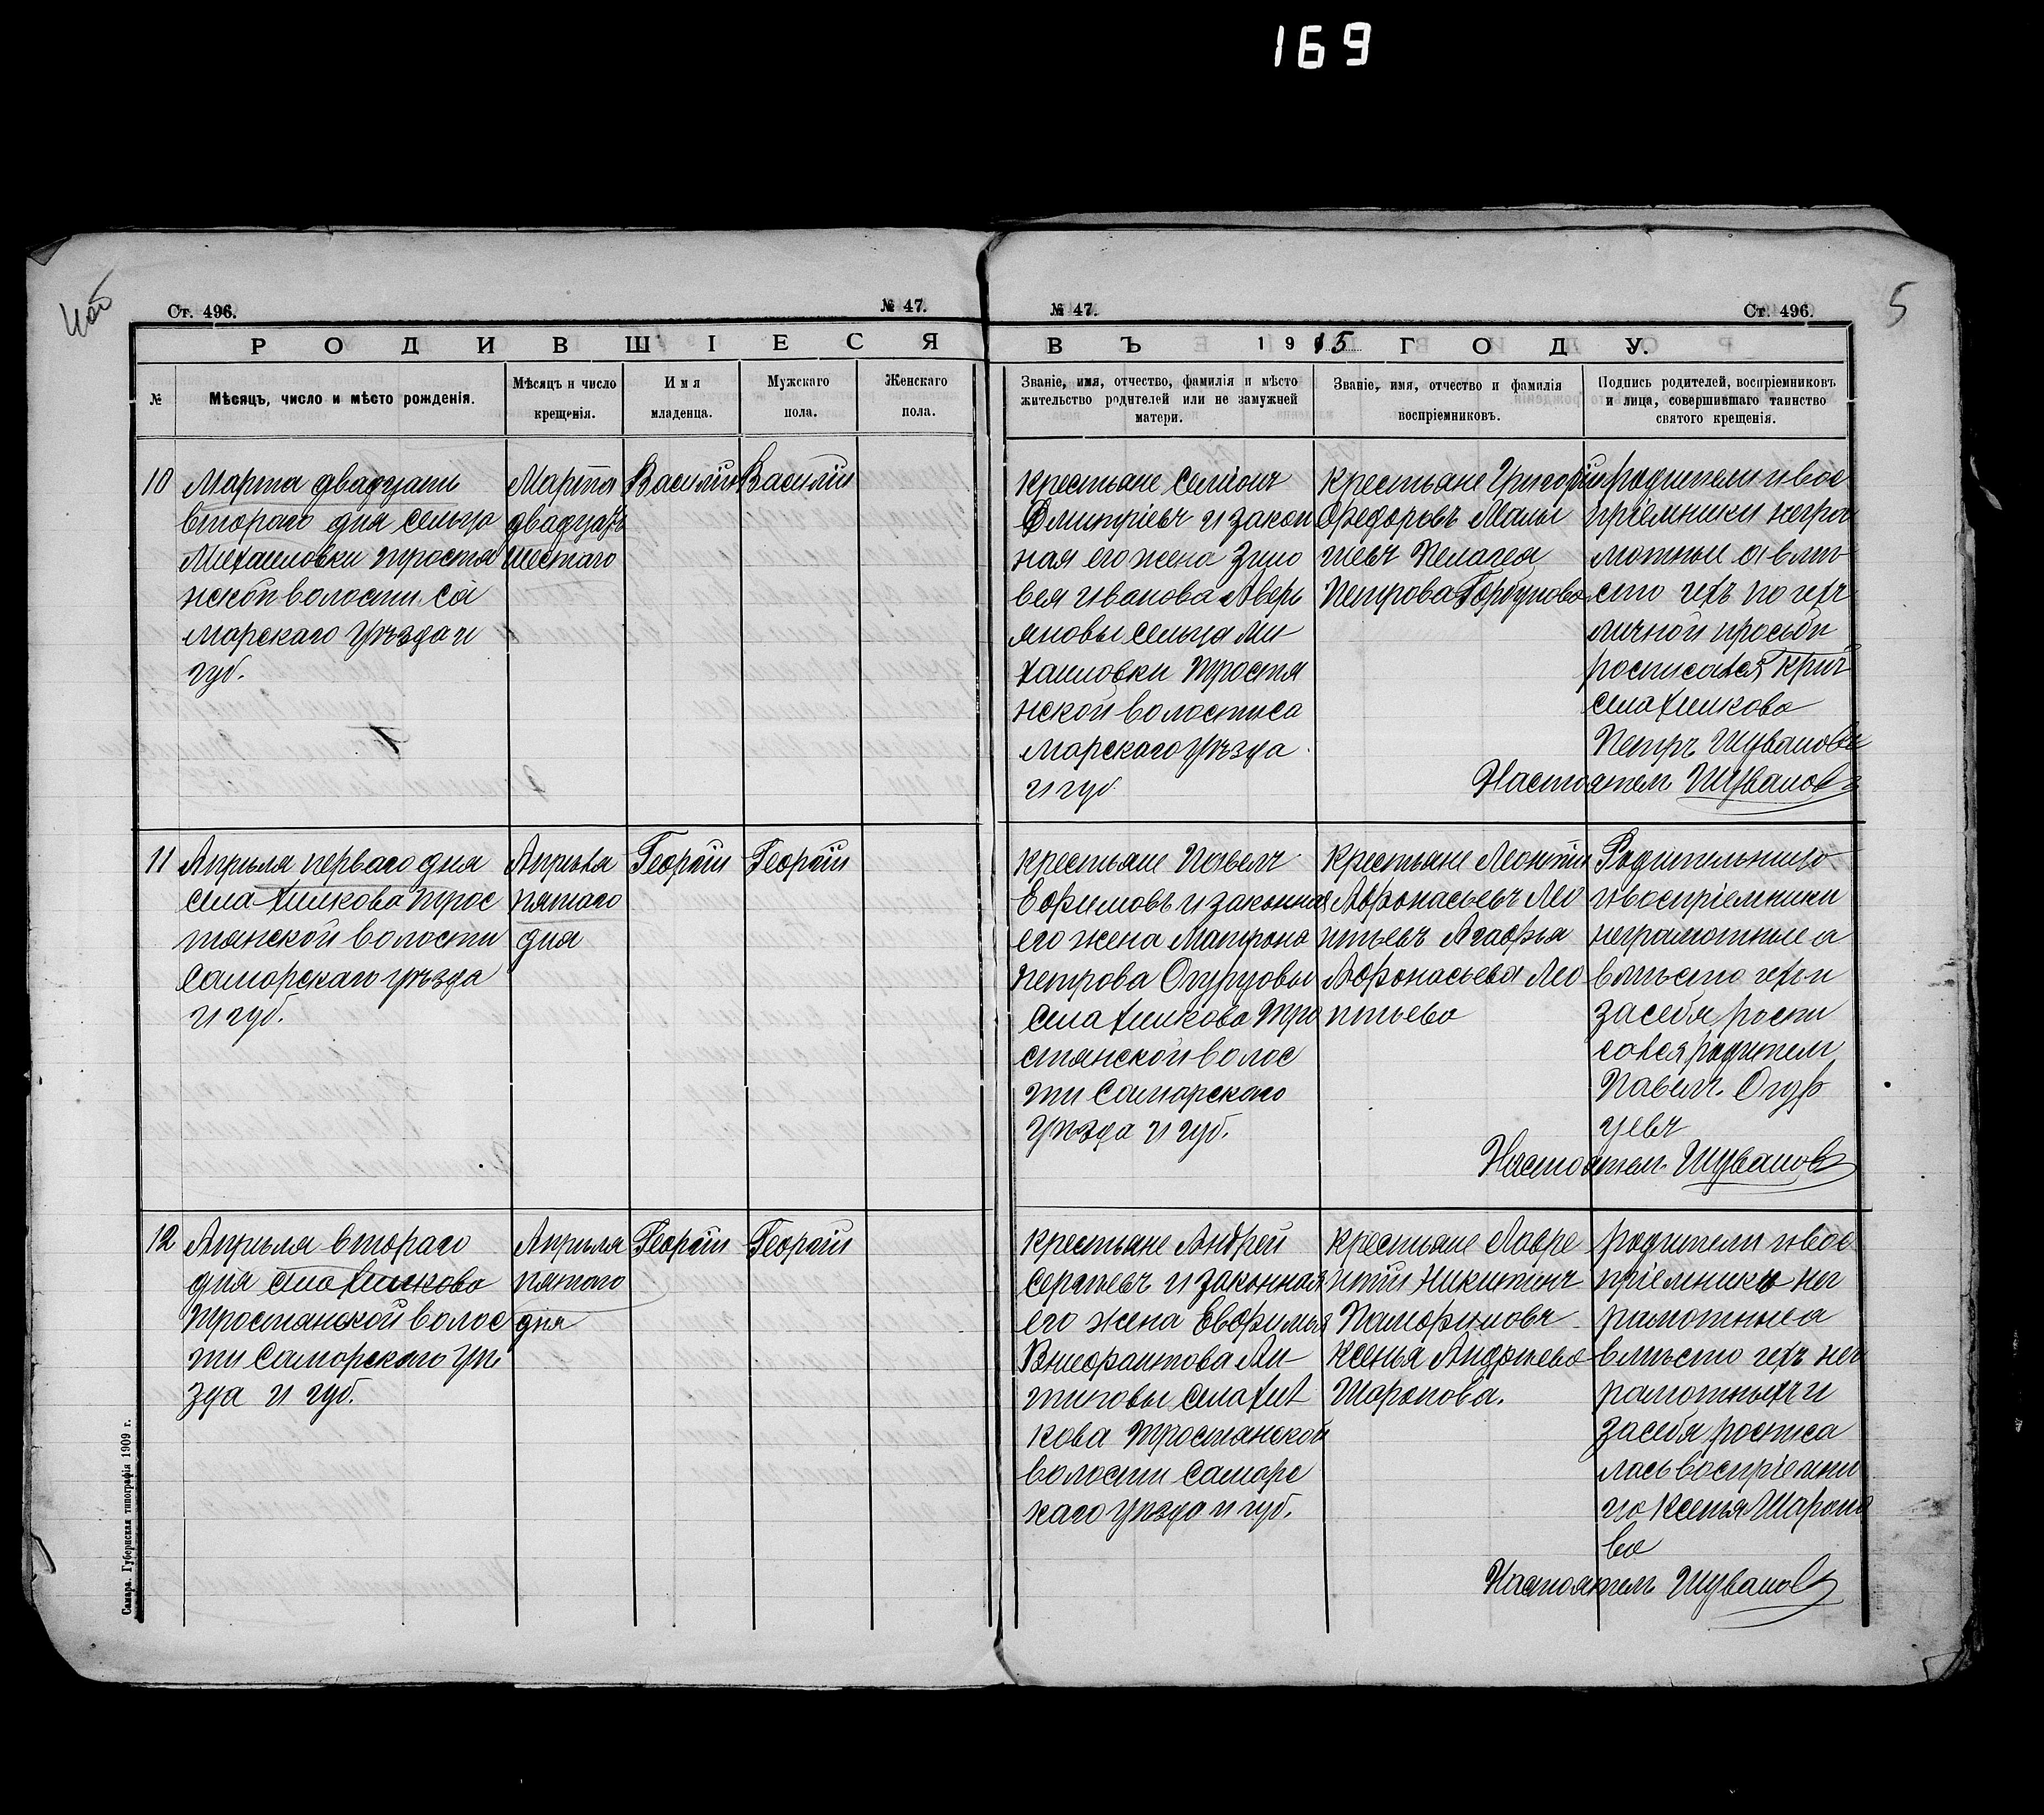 169
5
Ст. 496.
№ 47.
№ 47.
Ст. 496.
РОДИВШІЕСЯ
ВЪ 1915 ГОДУ.
№
Мѣсяцъ, число и мѣсто рожденія.
Мѣсяцъ и число крещенія.
Имя младенца.
Мужскаго пола.
Женскаго пола.
Званіе, имя, отчество, фамилія и мѣсто
жительство родителей или не замужней
матери.
Званіе, имя, отчество и фамилія
воспріемниковъ.
Подпись родителей, воспріемниковъ
и лица, совершившаго таинство
святого крещенія.
10
Марта двадцать
втораго дня сельца
Михаиловки Тростя
нской волости Са
марскаго уѣзда и
губ.
Марта
двадцать
шестаго
Василій
Василій
Крестьяне Семіонъ
Дмитріевъ и закон
ная его жена Зино
вея Иванова Аверь
яновы сельца Ми
хаиловки Тростя
нской волости Са
марскаго уѣзда
и губ
Крестьяне Григорій
Федоровъ
Пелагея
Петрова Горбунова
родители и вос
пріемники негра
мотные а вмѣ
сто ихъ по ихъ
личной просьби
росписался Кр.
села Хилкова
Петръ Шуваловъ
Настоятель Шуваловъ
11
Апрѣля перваго дня
села Хилкова Трос
тянской волости
Самарскаго уѣзда
и губ.
Апрѣля
пятаго
дня
Георгій
Георгій
Крестьяне Павелъ
Ефимовъ и законная
его жена Матрона
Петрова Огурцовы
села Хилкова Тро
стянской волос
ти Самарскаго
уѣзда и губ.
Крестьяне Леонтій
Афонасьевъ Лео
нтьевъ Агафья
Афонасьева Лео
нтьева
Родительница
и воспріемники
неграмотные а
вмѣсто ихъ и
за себя роспи
сался родитель
Павелъ Огур
цевъ
Настоятель Шуваловъ
12
Апрѣля втораго
дня села Хилкова
Тростянской волос
ти Самарскаго уѣ
зда и губ.
Апрѣля
пятаго
дня
Георгій
Георгій
Крестьяне Андрей
Сергѣевъ и законная
его жена Евфимья
села Хил
кова Тростянской
волости Самарс
каго уѣзда и губ.
Крестьяне Лавре
нтій Никитинъ
Ксенья Андрѣева
Шаронова.
родители и вос
пріемники нег
рамотные а
вмѣсто ихъ нег
рамотныхъ и
за себя росписа
лась воспріемни
ца Ксенья Шароно
ва
Настоятель Шуваловъ
Самара. Губернская типографія 1909 г.